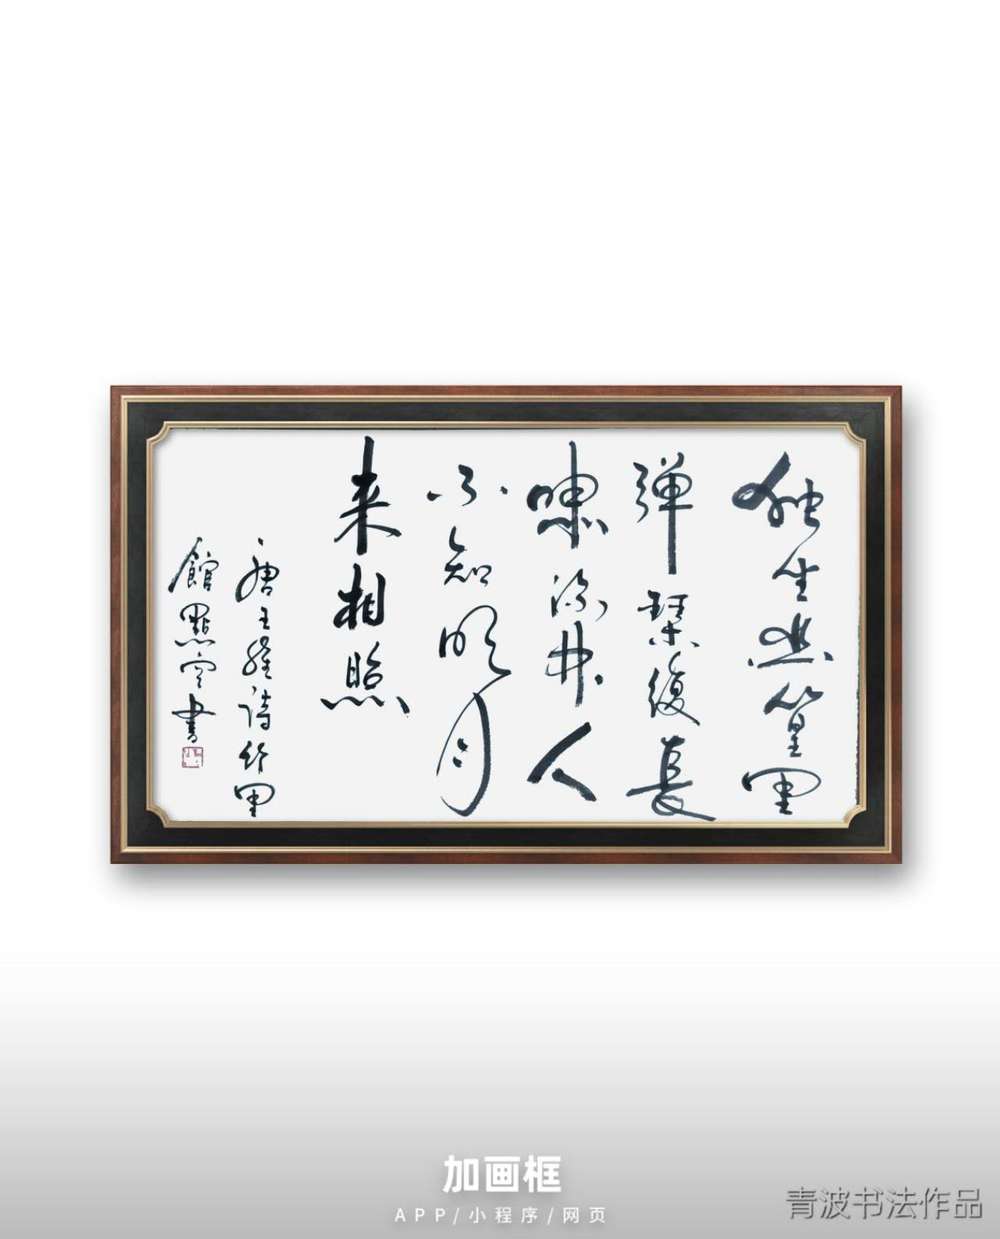 独坐幽篁里
弹琴復長
嘯深林人
不知明月
来相照
唐王维诗竹里
館 書
加画框
APP/小程序/网页
青波书法作品